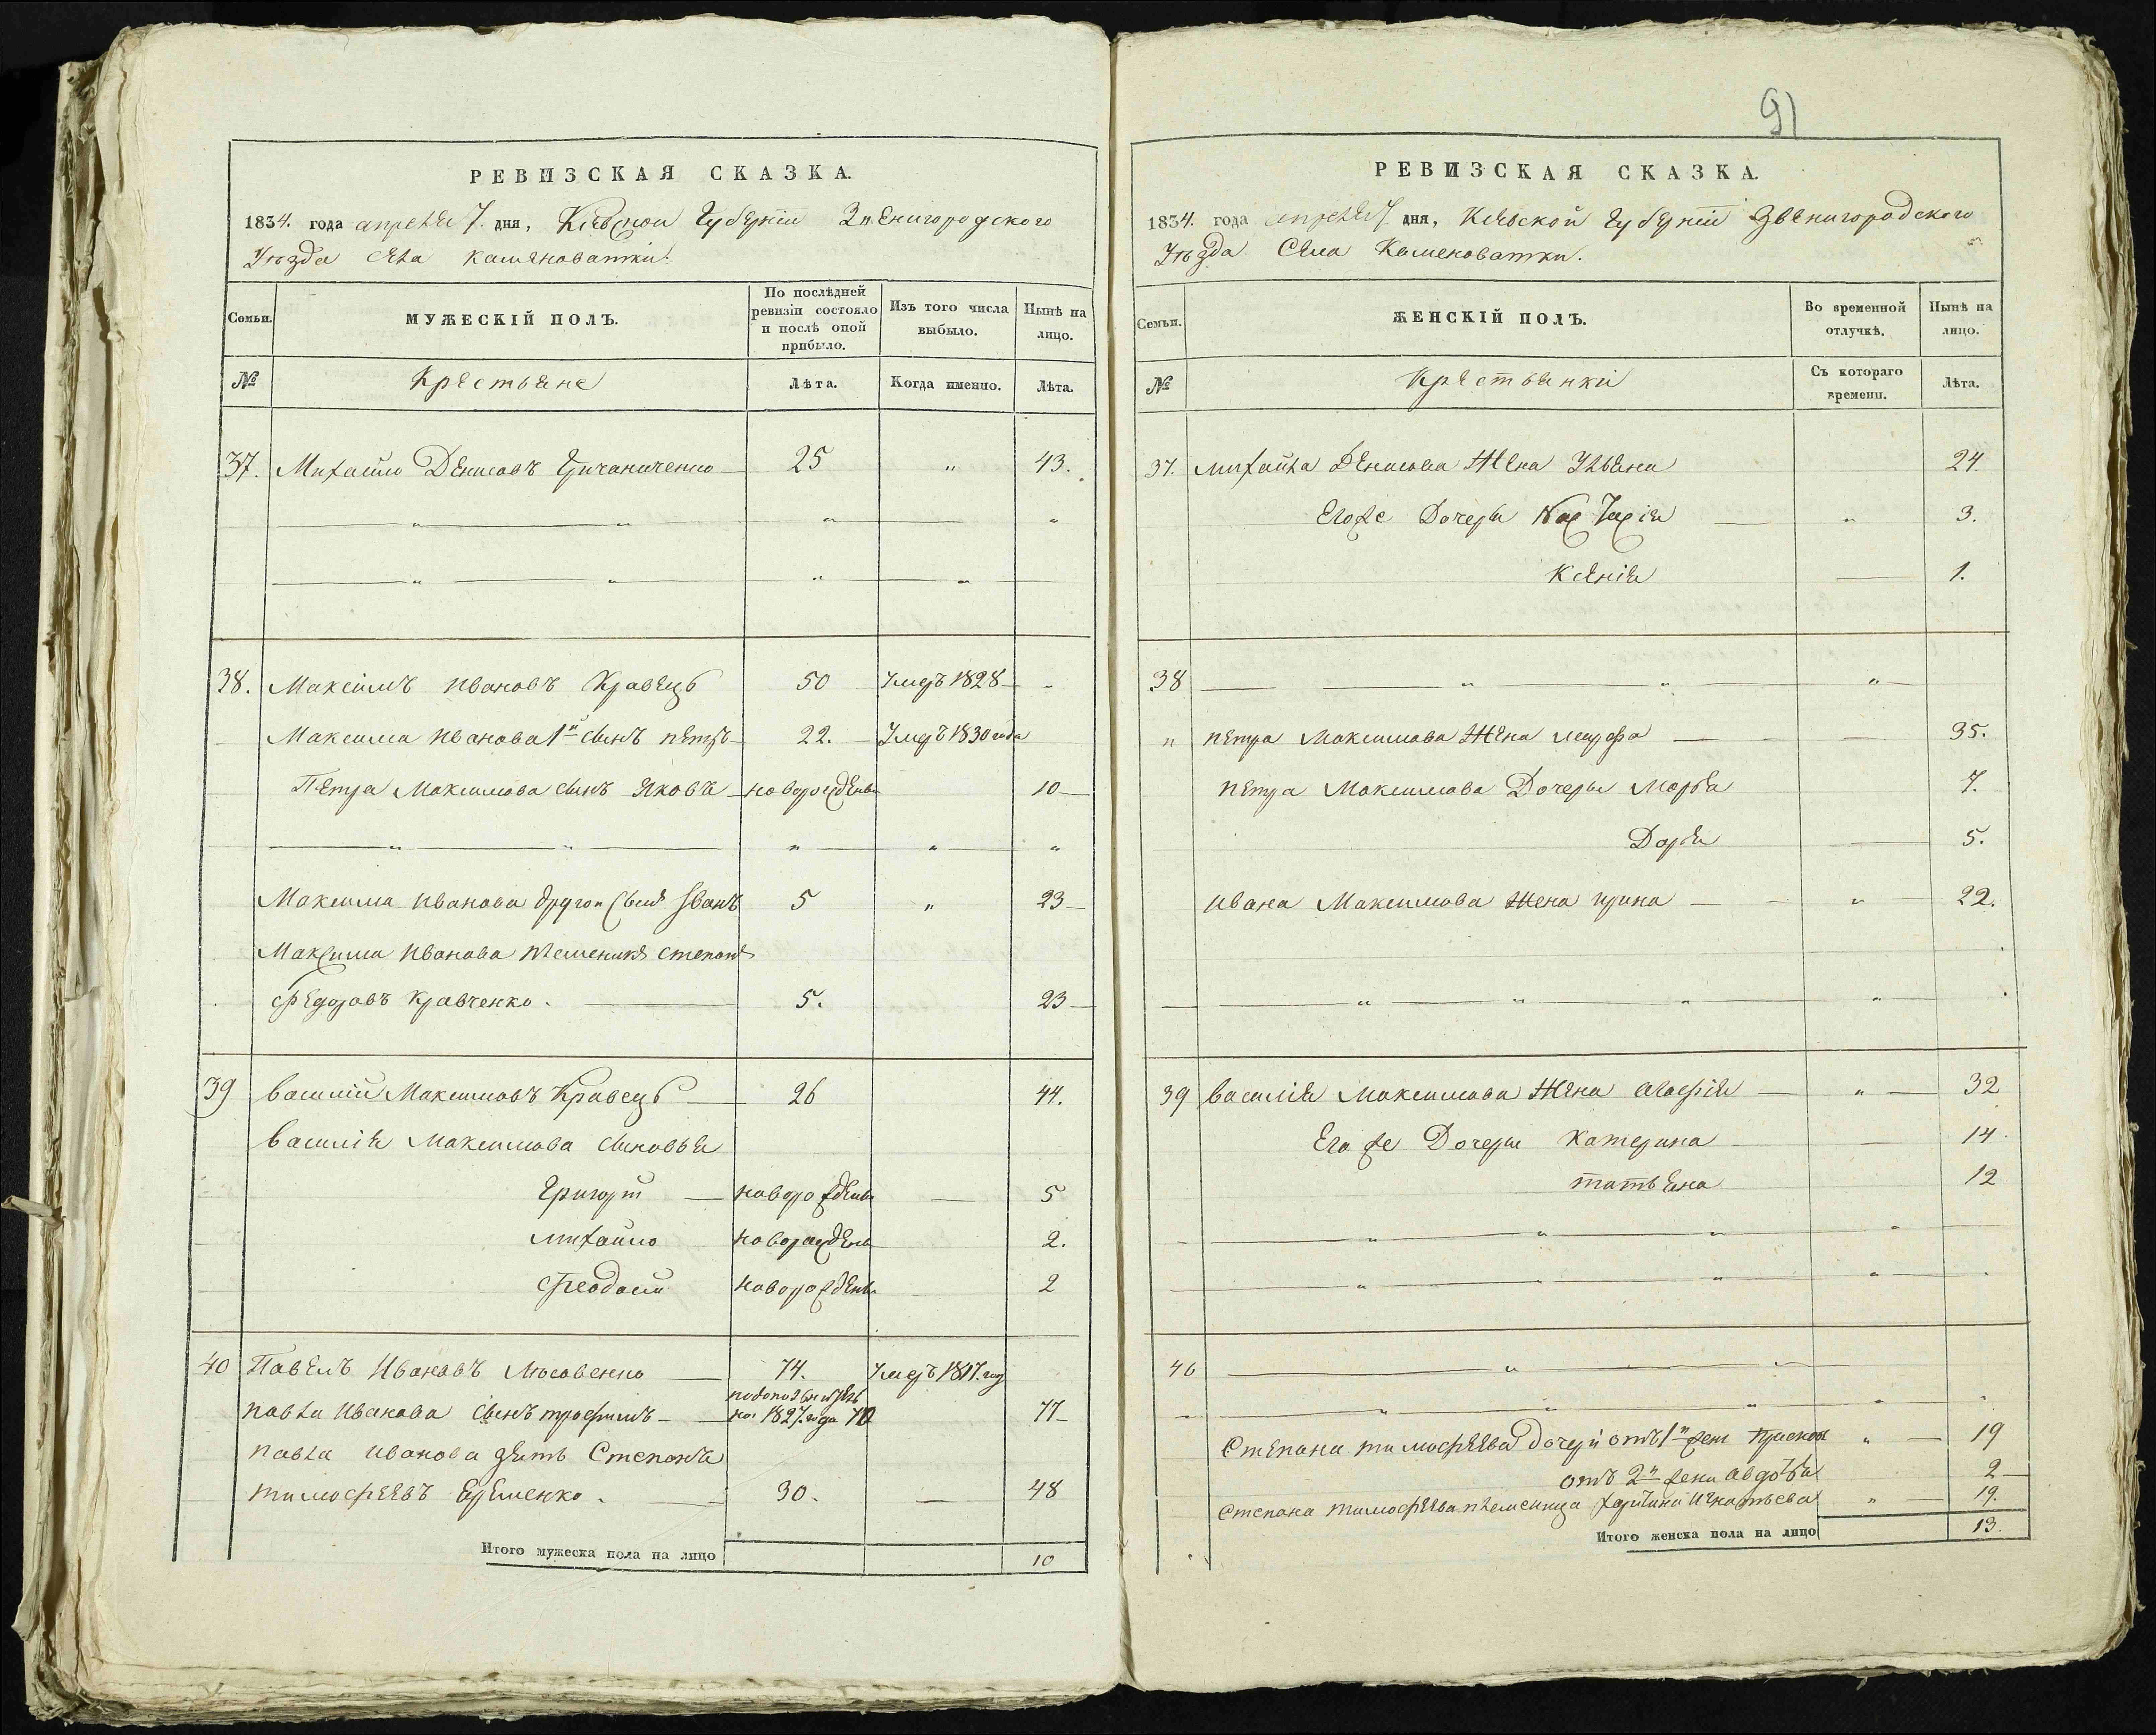 РЕВИЗСКАЯ СКАЗКА.
1834. года апреля 7. дня, Киевской Губернiи Звенигородского
Уѣзда села Каменоватки.
Семьи.
МУЖЕСКІЙ ПОЛЪ.
По послѣдней
ревизіи состояло
и послѣ оной
прибыло.
Изъ того числа
выбыло.
Нынѣ на
лицо.
№
Крестьяне
Лѣта.
Когда именно.
Лѣта.
37. Михайло Денисовъ 25 " 43.
38. Максимъ Ивановъ Кравецъ 50 Умеръ 1828
Максима Иванова 1й сынъ петръ 22. Умеръ 1830 года
Петра Максимова сынъ Яковъ новорожденъ 10
Максима Иванова другой сынъ Иванъ 5 " 23
Максима Иванова племеникъ степанъ
Федоровъ Кравченко. 5. 23
39 Василiй Максимовъ Кравецъ 26 44.
Василiя Максимова сыновья
Григорiй новорожденъ 5
Михайло новорожденъ 2.
Феодосiй новорожденъ 2
40 Павелъ Ивановъ 74. Умеръ 1817. год
павла Иванова сынъ трофимъ 1827. года 70 77
павла иванова зять Степанъ
тимофеевъ Еременко. 30. 48
Итого мужеска пола на лицо 10
91
РЕВИЗСКАЯ СКАЗКА.
1834. года апреля 7 дня, Киевской Губернiи Звенигородского
Уѣзда Села Каменоватки.
Семьи.
ЖЕНСКІЙ ПОЛЪ.
Во временной
отлучкѣ.
Нынѣ на
лицо.
№
Крестьянки
Съ котораго
времени.
Лѣта.
37. михайла Денисова Жена Ульяна 24.
Его же Дочеры 3.
Ксенiя 1.
38
" петра Максимова Жена 35.
петра Максимова Дочеры Марья 7.
Дарья 5.
ивана Максимова Жена ирина 22.
39 василiя Максимова Жена Агафiя " 32
Его же Дочеры Катерина 14.
татьяна 12
40
Степана тимофеева дочери отъ 1й жены " 19
отъ 2й жены Авдотья 2
Степана тимофеева племеница " 19.
Итого женска пола на лицо 13.